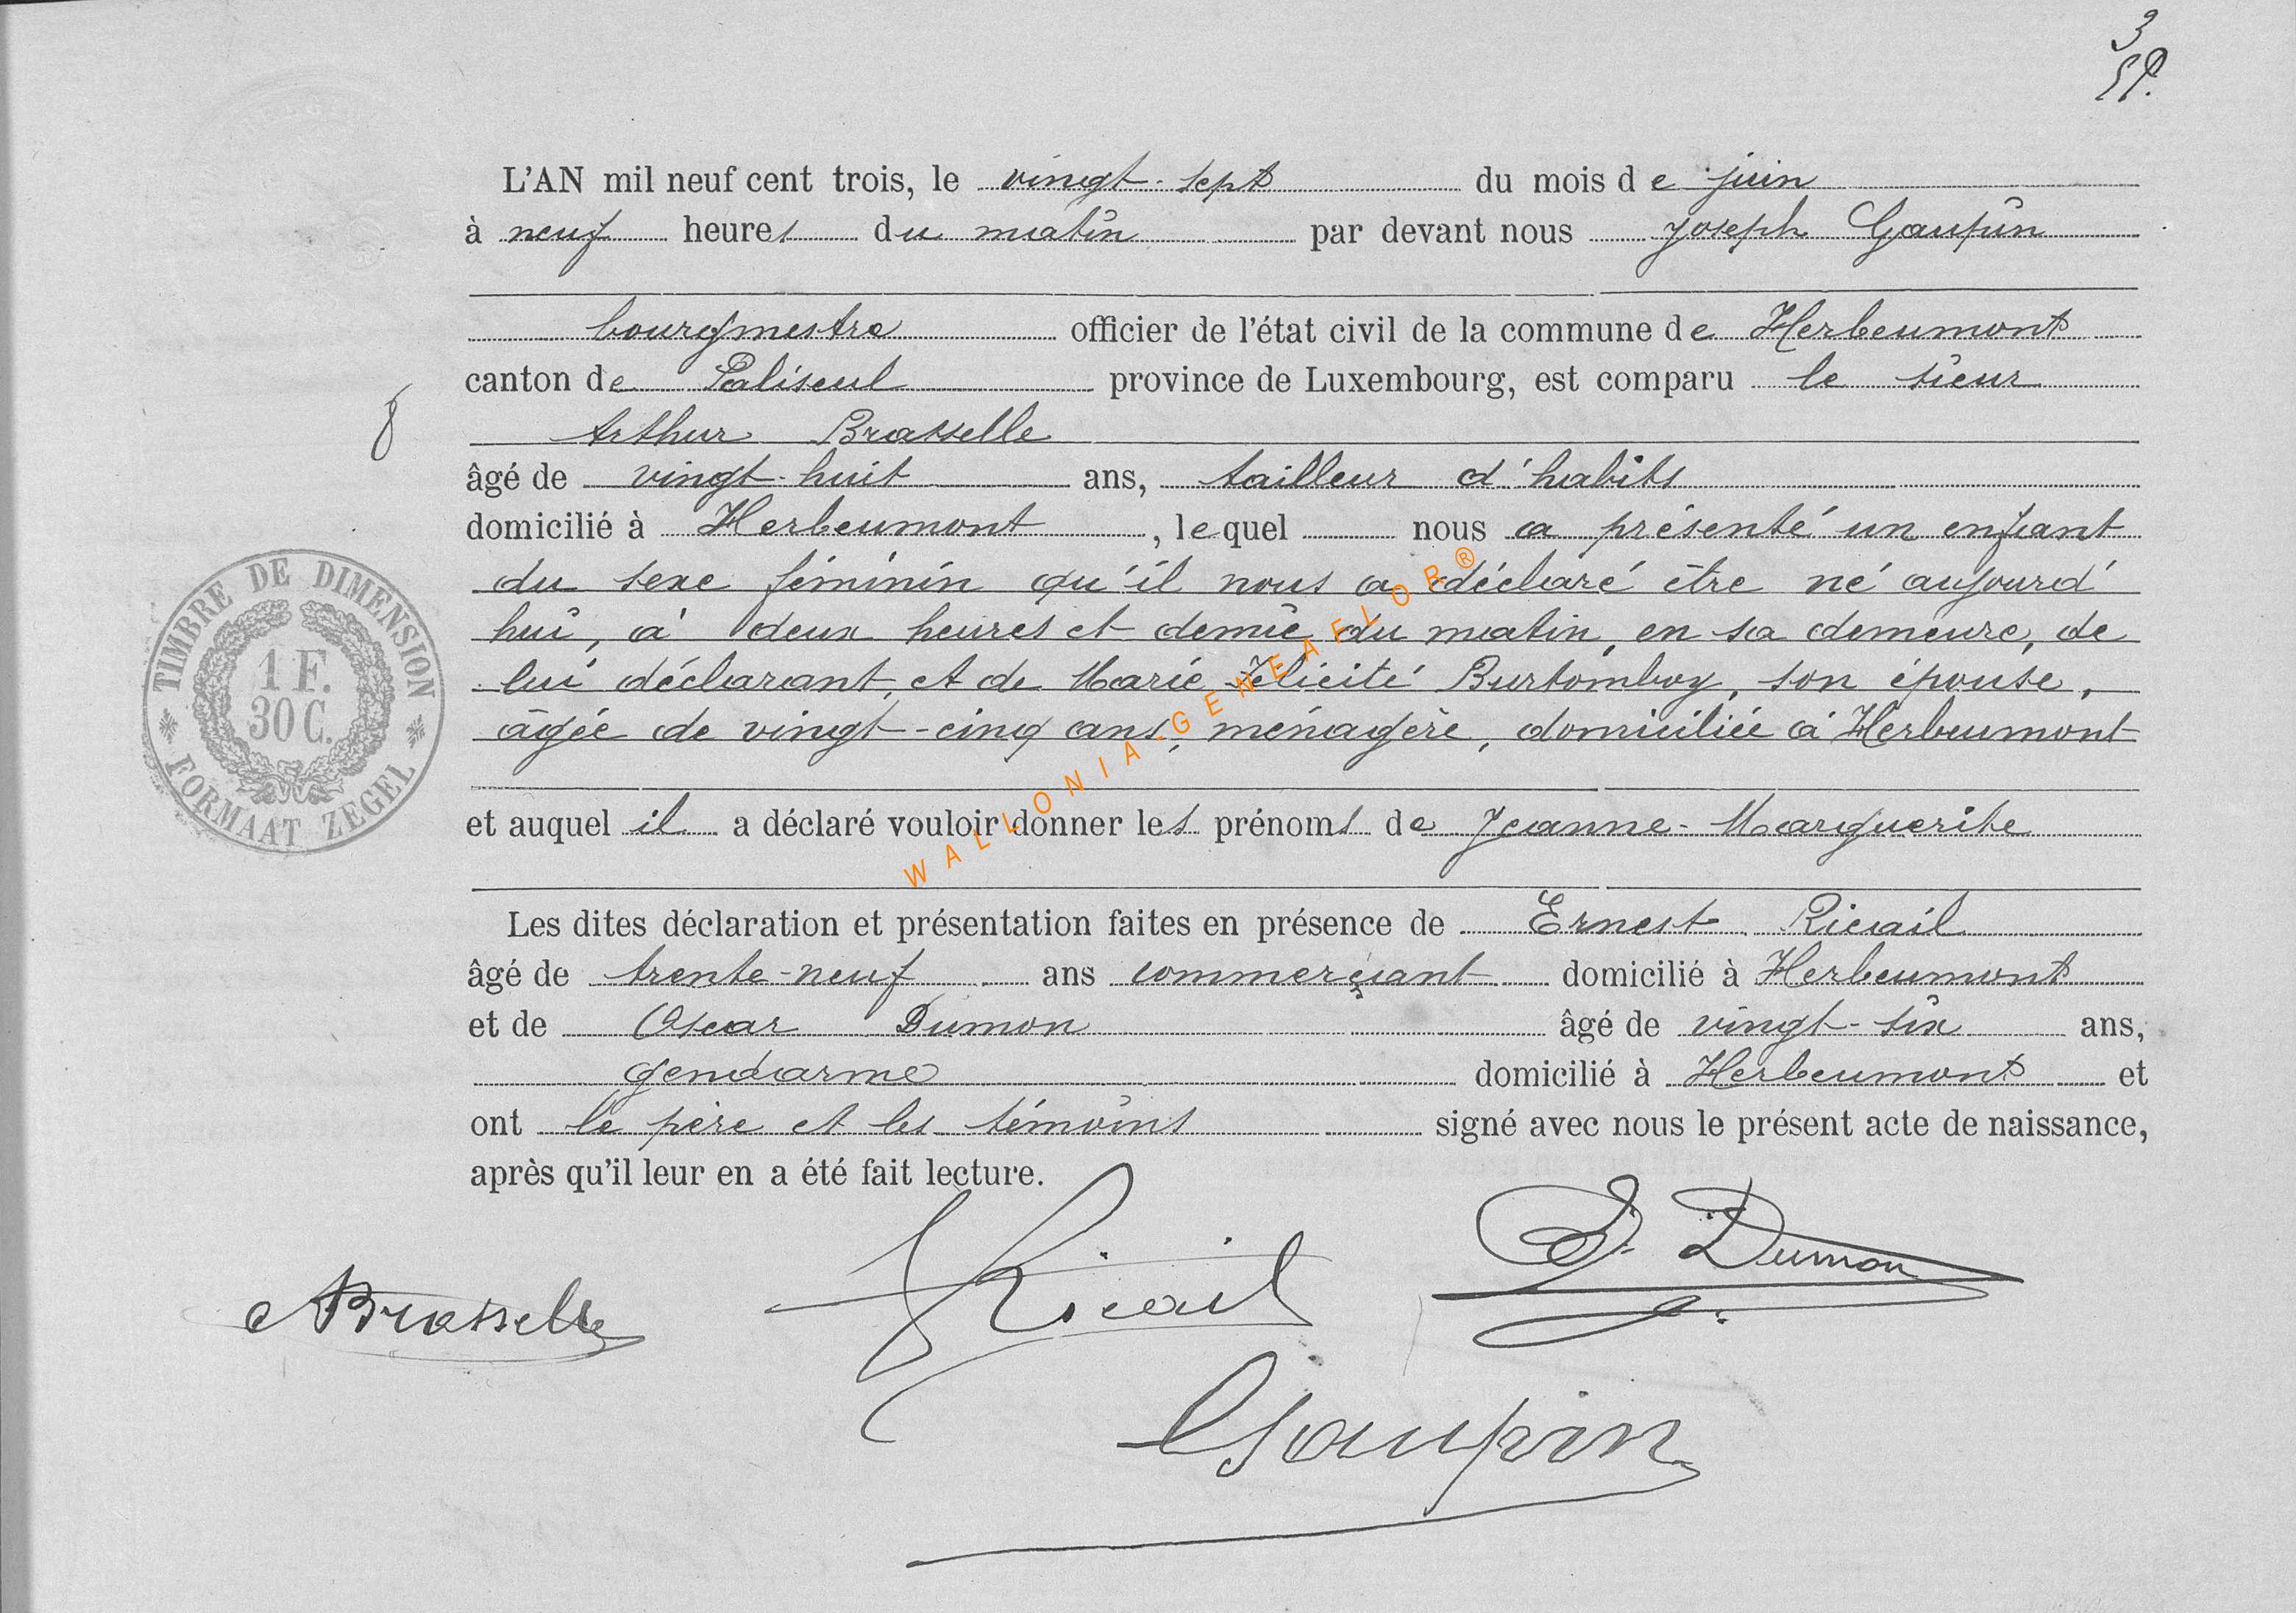 3
L'AN mil neuf cent trois, le vingt-sept du mois de juin
à neuf heures du matin par devant nous Joseph Gaupin
bourgmestre officier de l'état civil de la commune de Herbeumont
canton de Paliseul province de Luxembourg, est comparu le sieur
8
Arthur Brasselle
âgé de vingt-huit ans, tailleur d'habits
domicilié à Herbeumont, lequel nous a présenté un enfant
du sexe féminin qu'il nous a déclaré être né aujourd'
hui, à deux heures et demie du matin, en sa demeure, de
lui déclarant, et de Marie Félicité Burtomboy, son épouse,
âgée de vingt-cinq ans, ménagère, domiciliée à Herbeumont
et auquel il a déclaré vouloir donner les prénoms de Jeanne-Marguerite
Les dites déclaration et présentation faites en présence de Ernest Ricail
âgé de trente-neuf ans commerçant domicilié à Herbeumont
et de Oscar Dumon âgé de vingt-six ans,
gendarme domicilié à Herbeumont et
ont le père et les témoins signé avec nous le présent acte de naissance,
après qu'il leur en a été fait lecture.
ABrasselle Ricail O. Dumon
Gaupin
TIMBRE DE DIMENSION
1 F.
30 C.
FORMAAT ZEGEL
WALLONIA-GENEAFLOR®